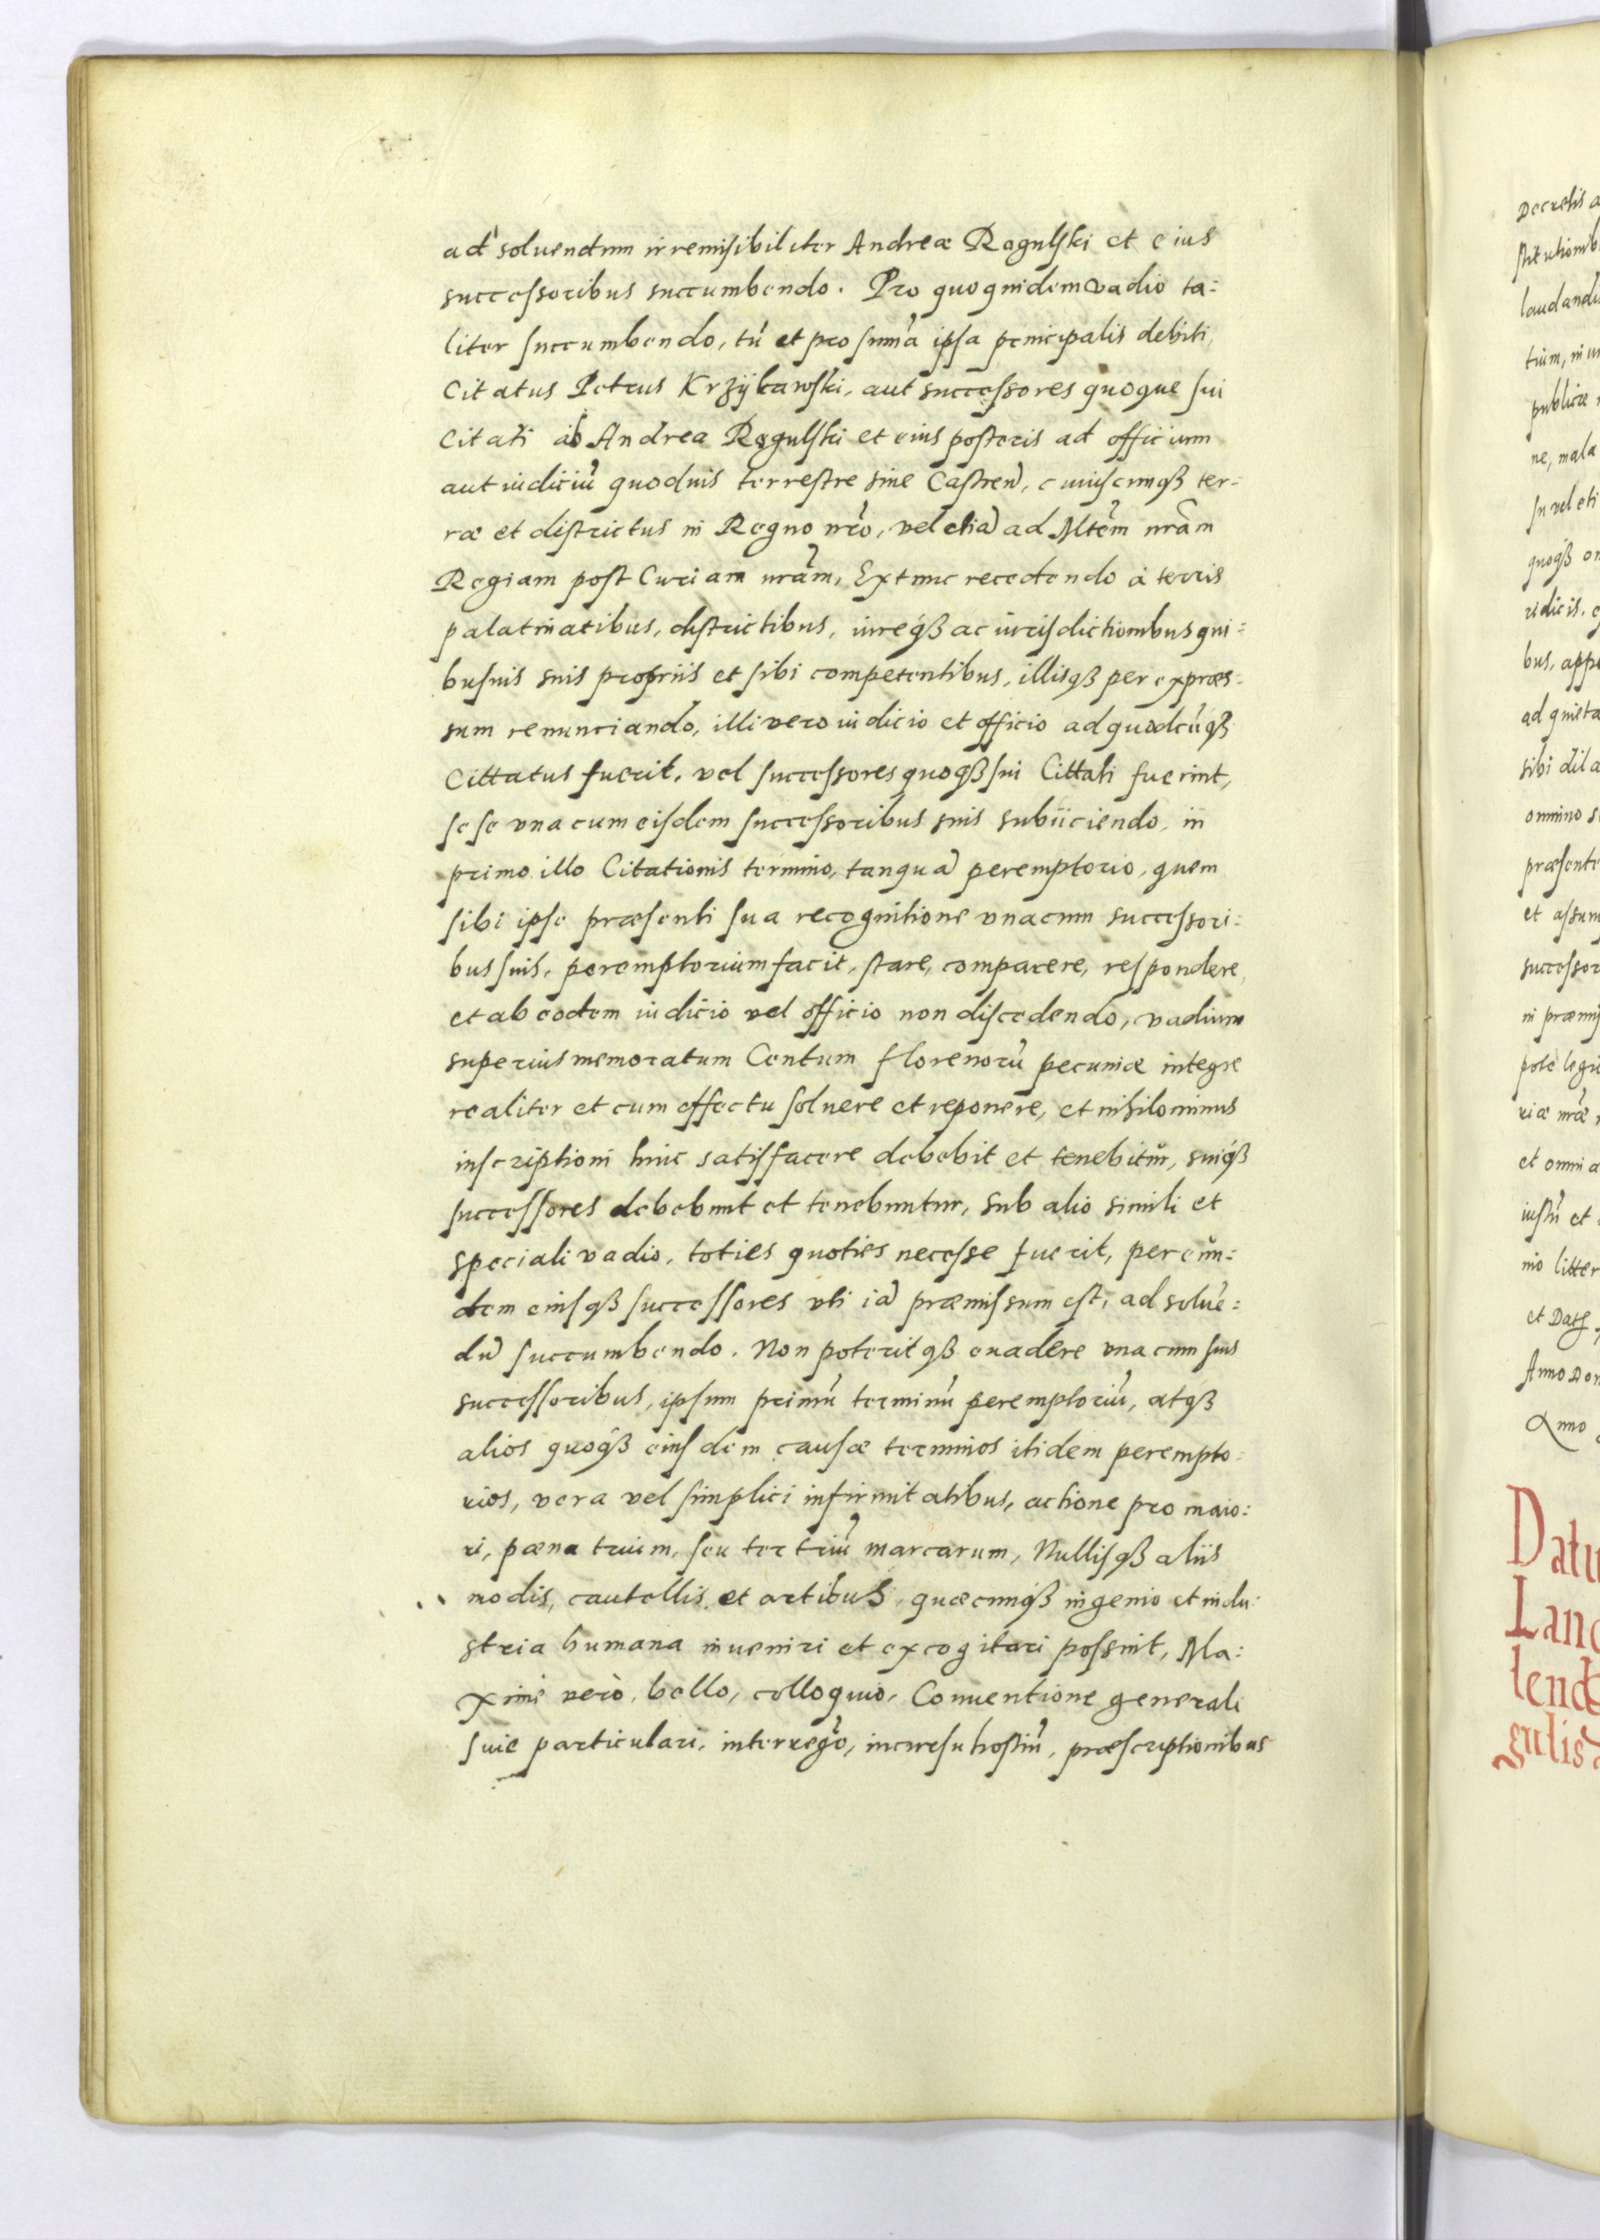 ad soluendum irremisibiliter Andreæ Rogulski et eius
successoribus succumbendo. Pro quoquidem vadio ta:
liter succumbendo, tũ et pro sum̃a ipsa principalis debiti,
Citatus Petrus Krzÿkawski, aut successores quoque sui
Citati ab Andrea Rogulski et eius posteris ad officium
aut iudiciũ quoduis terrestre siue Castreñ, cuiuscunqꝫ ter:
ræ et districtus in Regno nr̃o, vel etiã ad Mtẽm nrãm
Regiam post Curiam nrãm, Extunc recedendo à terris
palatinatibus, districtibus, iureqꝫ ac iurisdictionibus qui:
busuis suis propriis et sibi competentibus, illisqꝫ per expræs:
sum renunciando, illi vero iudicio et officio ad quodcũqꝫ
Cittatus fuerit, vel successores quoqꝫ sui Cittati fuerint,
sese vna cum eisdem successoribus suis subiiciendo, in
primo illo Citationis termino, tanquã peremptorio, quem
sibi ipse præsenti sua recognitione vnacum successori:
bus suis, peremptorium facit, stare, comparere, respondere,
et ab eodem iudicio vel officio non discedendo, vadium
superius memoratum Centum florenorũ pecuniæ integre
realiter et cum effectu soluere et reponere, et nihilominus
inscriptioni huic satisfacere debebit et tenebitur, suiqꝫ
successores debebunt et tenebuntur, sub alio simili et
speciali vadio, toties quoties necesse fuerit, per eũn:
dem eiusqꝫ successores vti iã præmissum est, ad soluẽ:
dũ succumbendo. Non poteritqꝫ euadere vna cum suis
successoribus, ipsum primũ terminũ peremptoriũ, atqꝫ
alios quoqꝫ eiusdem causæ terminos itidem perempto:
rios, vera vel simplici infirmitatibus, actione pro maio:
ri, pæna trium, seu ter triũ marcarum, Nullisqꝫ aliis
modis, cautellis et artibus, quæcunqꝫ ingenio et indu:
stria humana inueniri et excogitari possint, Ma:
xime verò, bello, colloquio, Conuentione generali
siue particulari, interregño, incursu hostiũ, præscriptionibus